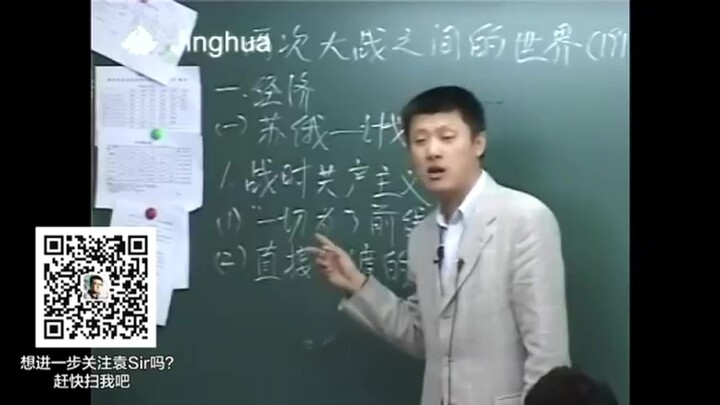 Jinghua
两次大战之间的世界(191
一.经济
(一)苏俄—计划
1.战时共产主义
(1)"一切为了前线
(2)直接 渡的
想进一步关注袁Sir吗?
赶快扫我吧